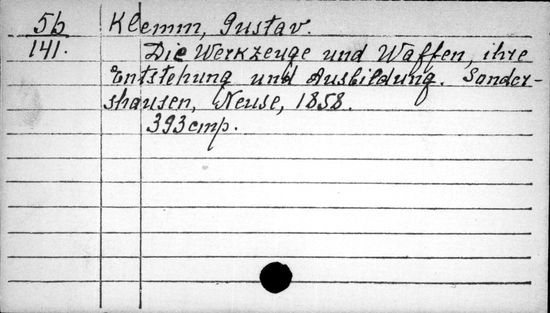 5b Klemm, Gustav.
141. Die Werkzeuge und Waffen, ihre
Entstehung und Ausbildung. Sonder-
shausen, Neuse, 1858.
393 cmp.